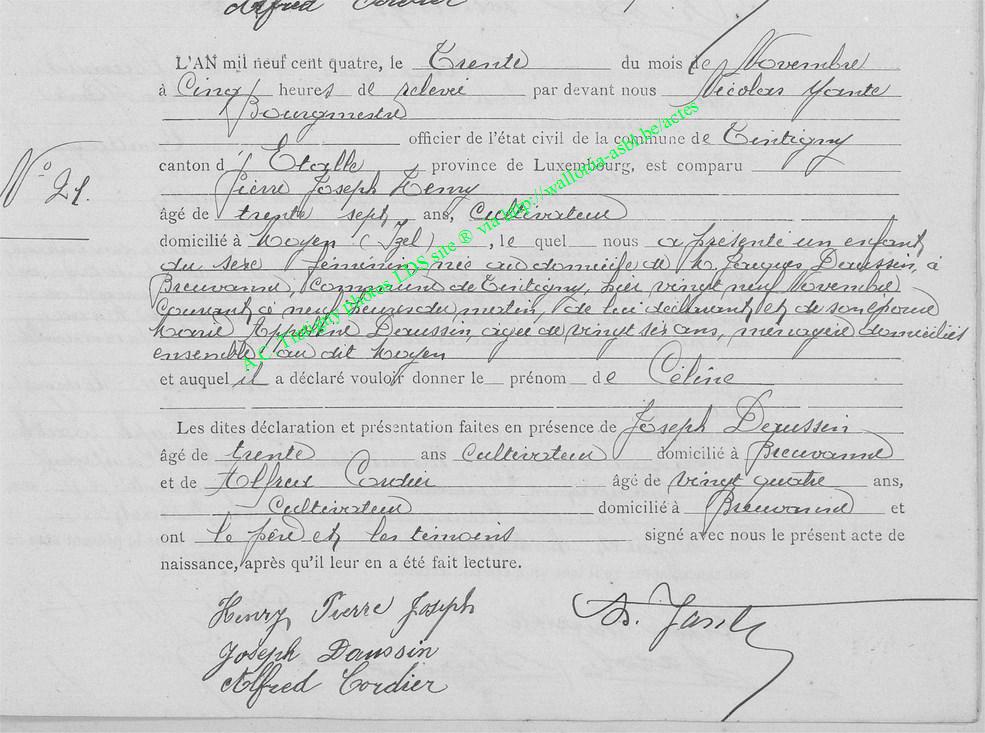 Alfred Cordier
L'AN mil neuf cent quatre, le Trente du mois de Novembre
à Cinq heures de relevée par devant nous Nicolas Yante
Bourgmestre
officier de l'état civil de la commune de Tintigny
canton d' Etalle province de Luxembourg, est comparu
N° 21.
Pierre Joseph Henry
âgé de trente sept ans, Cultivateur
domicilié à Moyen (Izel), le quel nous a présenté un enfant
du sexe féminin née au domicile de M. Jacques Daussin, à
Breuvanne, Commune de Tintigny, hier vingt neuf Novembre
Courant à neuf heures du matin, de lui déclarant et de son épouse
Marie Daussin, agée de vingt six ans, ménagère domiciliés
ensemble au dit Moyen
et auquel il a déclaré vouloir donner le prénom de Céline
Les dites déclaration et présentation faites en présence de Joseph Daussin
âgé de trente ans Cultivateur domicilié à Breuvanne
et de Alfred Cordier âgé de vingt quatre ans,
Cultivateur domicilié à Breuvanne et
ont le père et les témoins signé avec nous le présent acte de
naissance, après qu'il leur en a été fait lecture.
Henry Pierre Joseph
Joseph Daussin
Alfred Cordier
A.C. Tintigny photos LDS site ® via http://wallonia-asbl.be/actes